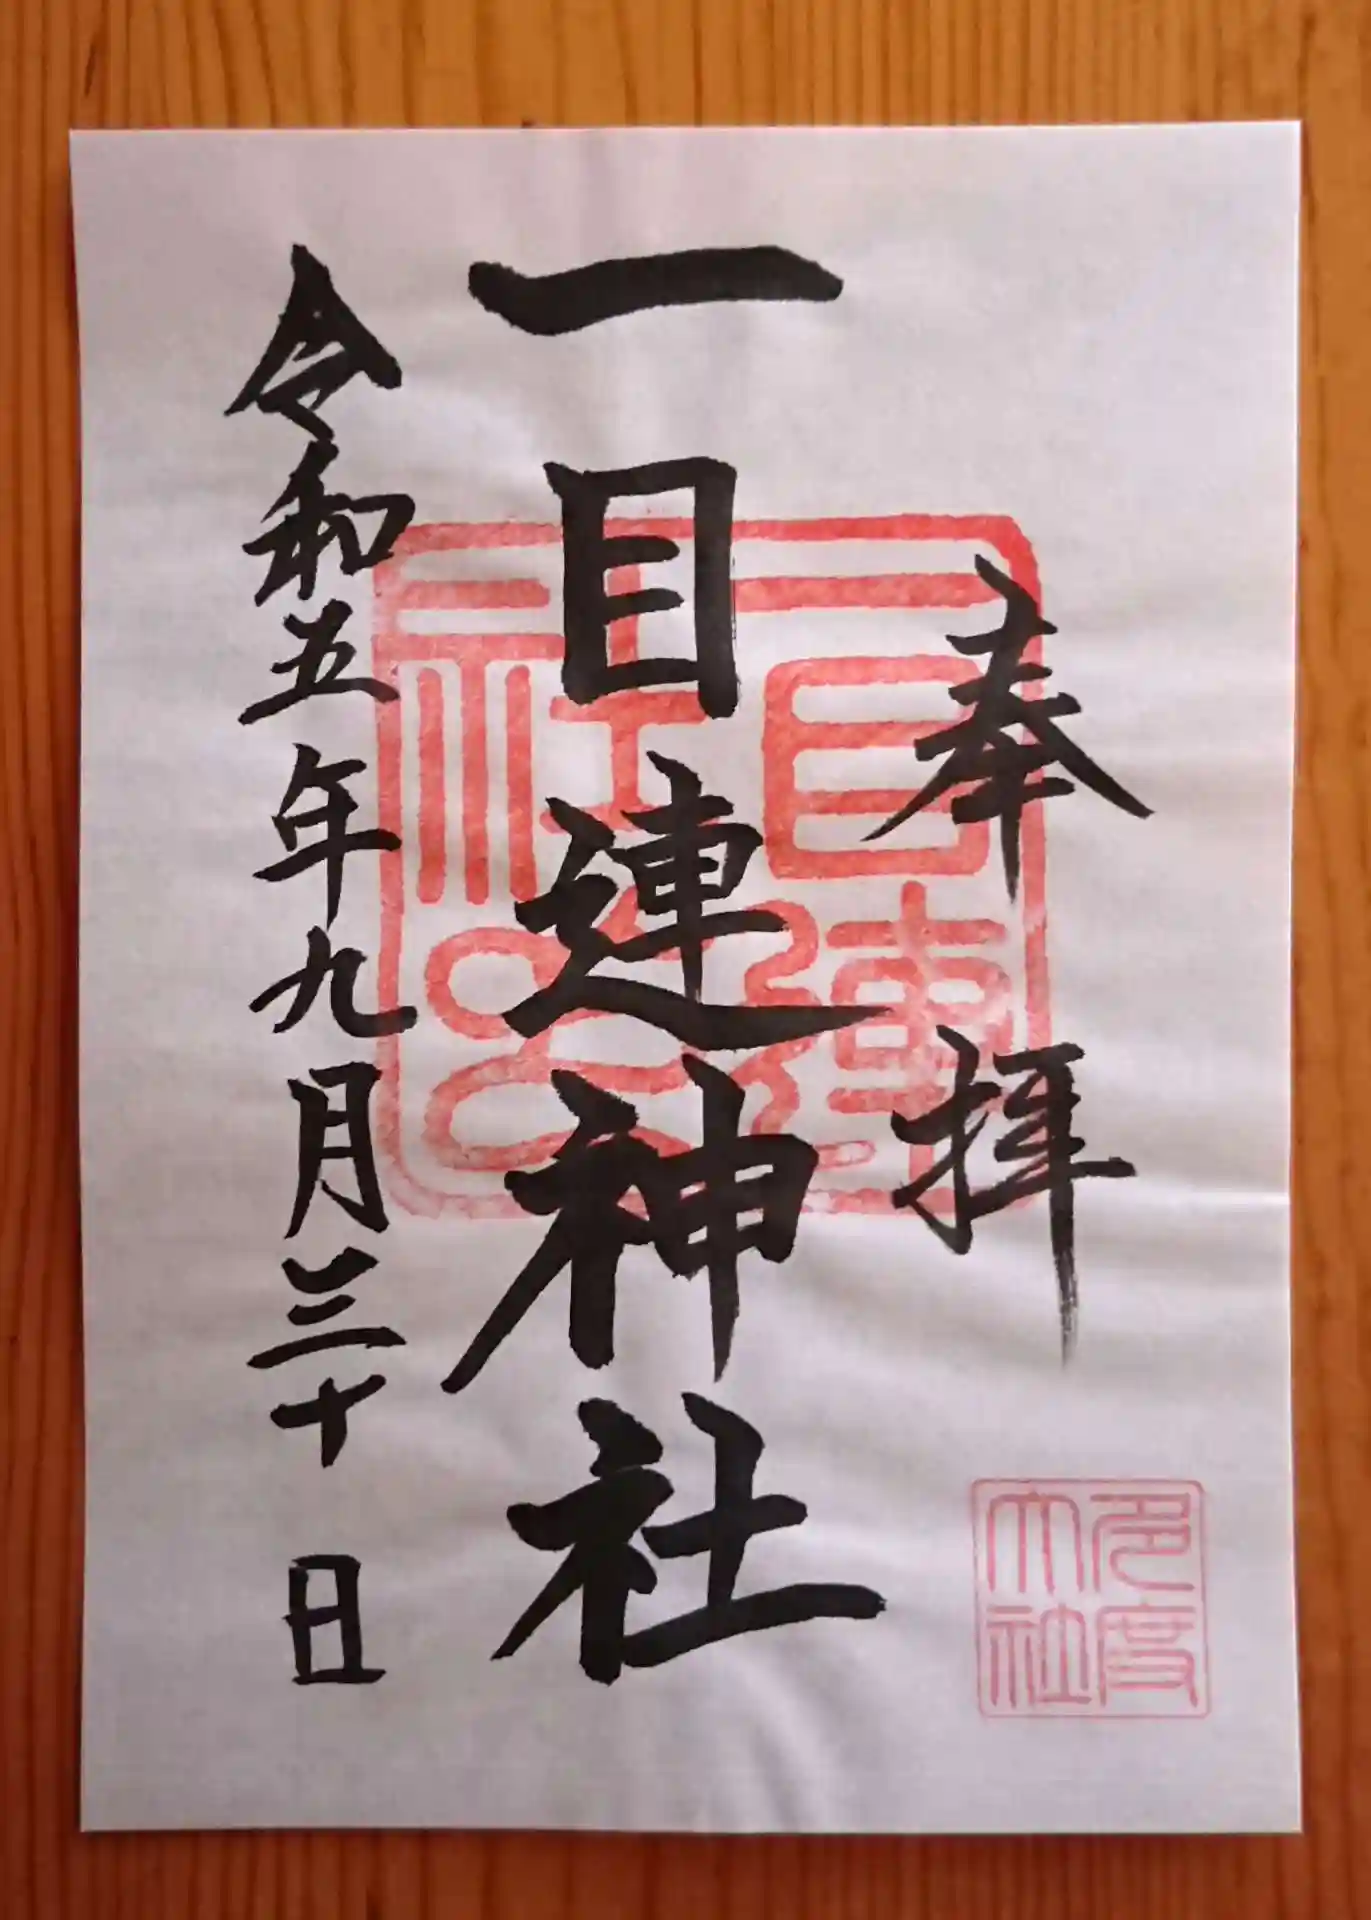 奉拝
一目連神社
令和五年九月三十日
一目連社之印
多度大社